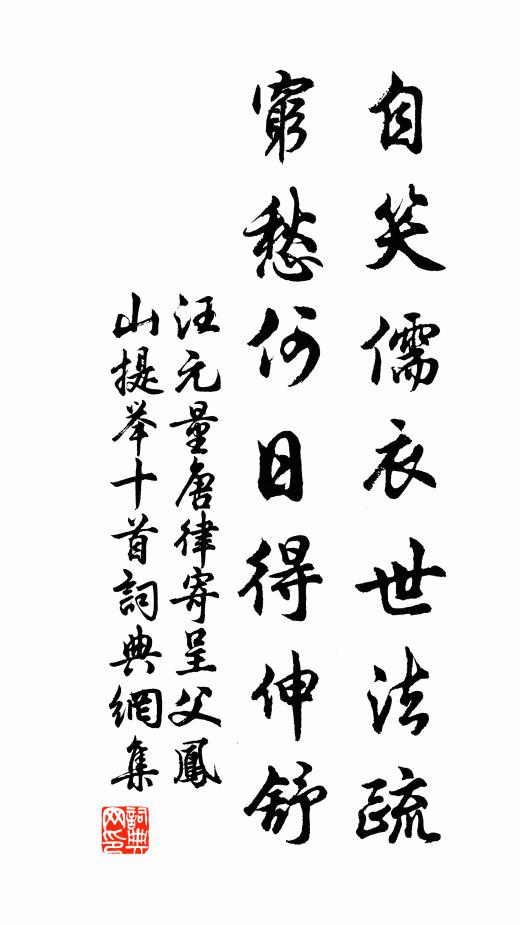 自笑儒衣世法疏
窮愁何日得伸舒
汪元量唐律寄呈父鳳
山提举十首詞典網集
詞典
网印